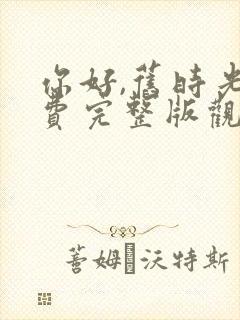 你好,舊時光
費完整版觀
薈姆沃特斯